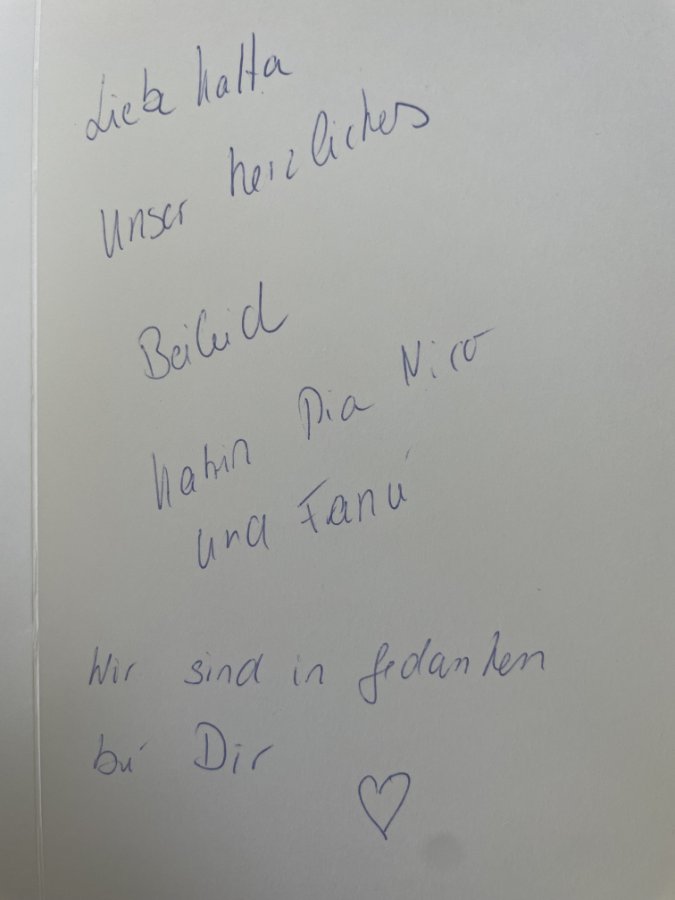 Liebe Katta
Unser herzliches
Beileid
Katrin Pia Nico
und
Wir sind in gedanken
bei Dir